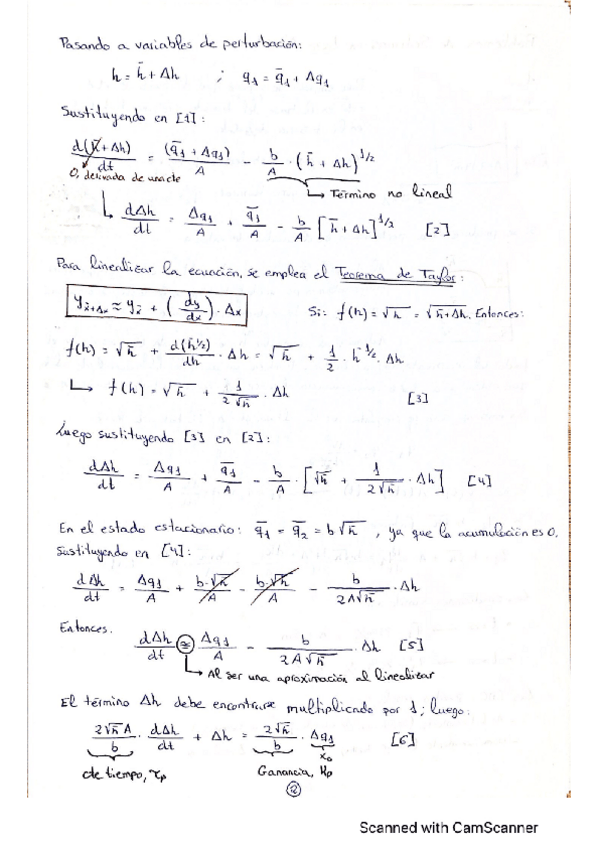 Pasando a variables de perturbación:
h = h̄ + Δh ; q₁ = q̄₁ + Δq₁
Sustituyendo en [1]:
d(h̄ + Δh)/dt = (q̄₁ + Δq₁)/A - b/A · (h̄ + Δh)^1/2
0, derivada de una cte
↳ Término no lineal
↳ dΔh/dt = Δq₁/A + q̄₁/A - b/A [h̄ + Δh]^1/2 [2]
Para linealizar la ecuación, se emplea el Teorema de Taylor:
y_x̄+Δx ≈ y_x̄ + (dy/dx) · Δx Si: f(h) = √h = √h̄+Δh. Entonces:
f(h) = √h̄ + d(h^1/2)/dh · Δh = √h̄ + 1/2 · h̄^-1/2 · Δh
↳ f(h) = √h̄ + 1/2√h̄ · Δh [3]
Luego sustituyendo [3] en [2]:
dΔh/dt = Δq₁/A + q̄₁/A - b/A · [√h̄ + 1/2√h̄ · Δh] [4]
En el estado estacionario: q̄₁ = q̄₂ = b√h̄, ya que la acumulación es 0.
Sustituyendo en [4]:
dΔh/dt = Δq₁/A + b·√h̄/A - b·√h̄/A - b/2A√h̄ · Δh
Entonces.
dΔh/dt ≅ Δq₁/A - b/2A√h̄ · Δh [5]
↳ Al ser una aproximación al linealizar
El término Δh debe encontrarse multiplicando por 1; luego:
2√h̄ A/b · dΔh/dt + Δh = 2√h̄/b · Δq₁ [6]
cte tiempo, τp Ganancia, Kp
2
Scanned with CamScanner